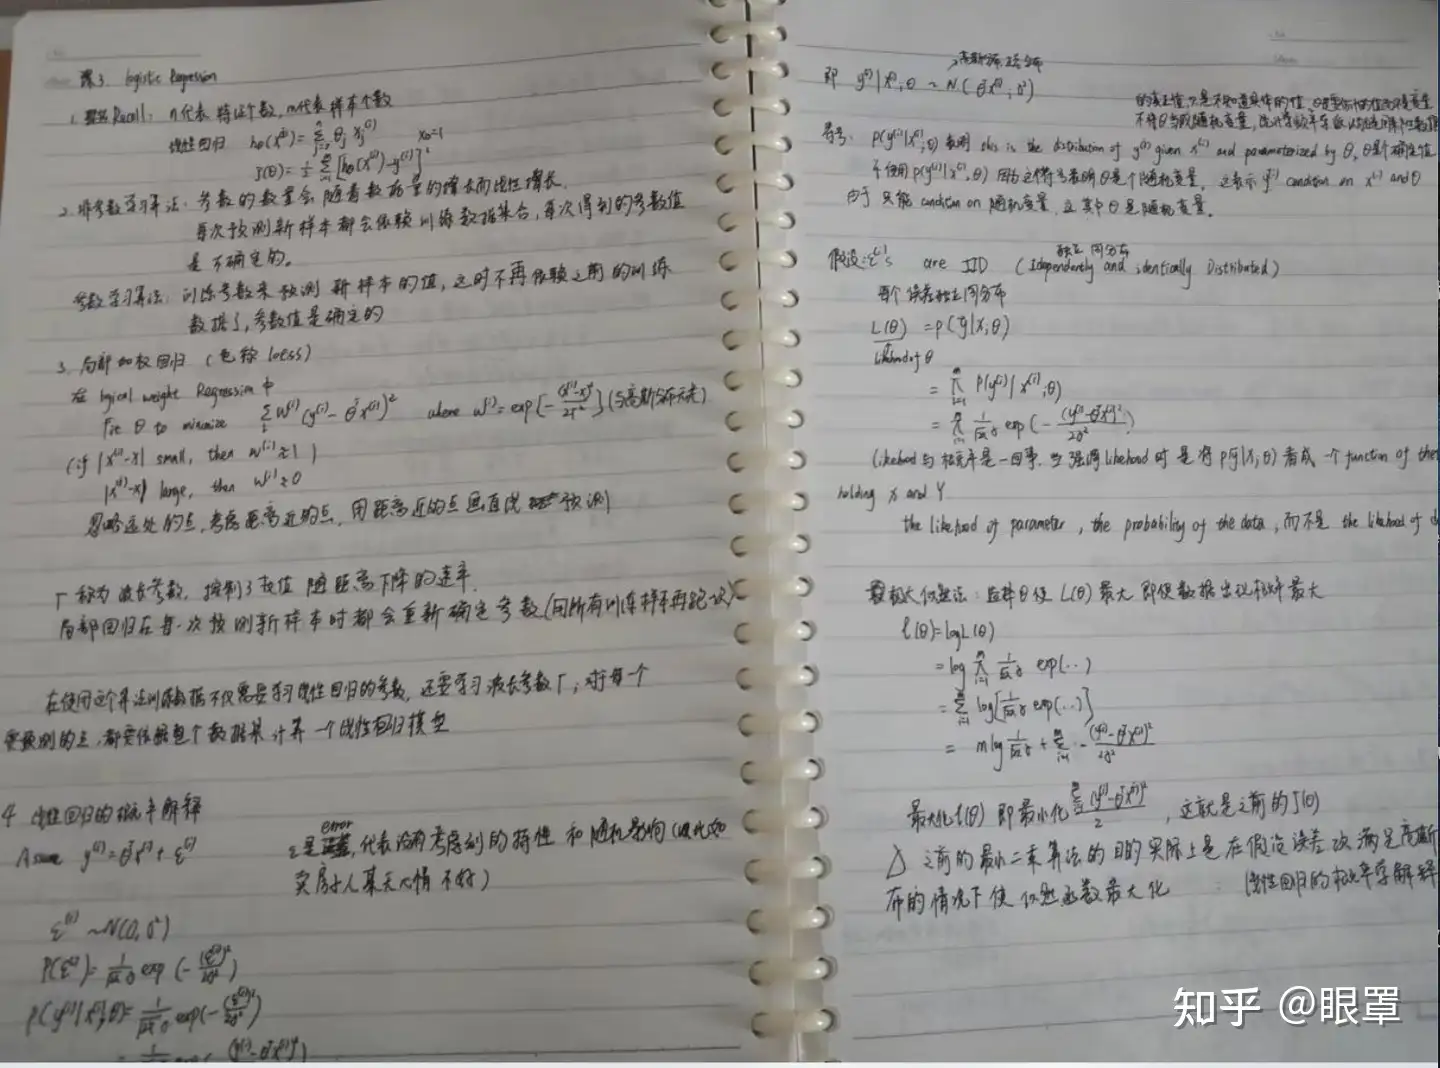 课3. logistic Regression
1. Recall: n代表特征个数, m代表样本个数
线性回归 hθ(x⁽ⁱ⁾)=Σθj xj⁽ⁱ⁾ x0=1
J(θ)=½ Σ[hθ(x⁽ⁱ⁾)-y⁽ⁱ⁾]²
2. 非参数学习算法: 参数的数量会随着数据量的增长而线性增长.
每次预测新样本都会依赖训练数据集合, 每次得到的参数值
是不确定的。
参数学习算法: 训练参数来预测新样本的值, 这时不再依赖之前的训练
数据了, 参数值是确定的
3. 局部加权回归 (也称 loess)
在 logical weight Regression 中
Fit θ to minimize Σ w⁽ⁱ⁾(y⁽ⁱ⁾-θᵀx⁽ⁱ⁾)² where w⁽ⁱ⁾=exp(-(x⁽ⁱ⁾-x)²/2τ²) (与高斯分布无关)
(if |x⁽ⁱ⁾-x| small, then w⁽ⁱ⁾≈1)
|x⁽ⁱ⁾-x| large, then w⁽ⁱ⁾≈0
忽略远处的点, 考虑距离近的点, 用距离近的点画直线 预测
τ 称为波长参数, 控制了权值随距离下降的速率.
局部回归在每一次预测新样本时都会重新确定参数(问所有训练样本再跑一次)
在使用这个算法训练数据不仅需要学习线性回归的参数, 还要学习波长参数τ; 对每一个
要预测的点, 都要依据整个数据集计算一个线性回归模型
4 线性回归的概率解释
Assume y⁽ⁱ⁾=θᵀx⁽ⁱ⁾+ε⁽ⁱ⁾
error
ε是误差, 代表没有考虑到的特性和随机影响(比如
卖房子人某天心情不好)
ε⁽ⁱ⁾~N(0,σ²)
P(ε⁽ⁱ⁾)=1/(√2π σ) exp(-(ε⁽ⁱ⁾)²/2σ²)
P(y⁽ⁱ⁾|x⁽ⁱ⁾;θ)=1/(√2π σ) exp(-(ε⁽ⁱ⁾)²/2σ²)
= 1/(√2π σ) exp(-(y⁽ⁱ⁾-θᵀx⁽ⁱ⁾)²
高斯(正态分布
即 y⁽ⁱ⁾|x⁽ⁱ⁾;θ ~ N(θᵀx⁽ⁱ⁾, σ²)
不将θ当成随机变量,
符号: P(y⁽ⁱ⁾|x⁽ⁱ⁾;θ) 表明 this is the distribution of y⁽ⁱ⁾ given x⁽ⁱ⁾ and parameterized by θ, θ是个确定值
不使用p(y⁽ⁱ⁾|x⁽ⁱ⁾,θ) 因为这符号表明θ是个随机变量, 这表示 y⁽ⁱ⁾ condition on x⁽ⁱ⁾ and θ
由于只能 condition on 随机变量, 其中θ是随机变量.
独立同分布
假设:ε⁽ⁱ⁾'s are IID (Idependently and identically Distributed)
每个误差独立同分布
L(θ) =P(y⃗|X;θ)
likehood of θ
= Π P(y⁽ⁱ⁾|x⁽ⁱ⁾;θ)
= Π 1/(√2π σ) exp(-(y⁽ⁱ⁾-θᵀx⁽ⁱ⁾)²/2σ²)
likehood与概率是一回事. 当强调likehood时是将P(y⃗|X;θ)看成一个function of theta
holding X and Y
the likehood of parameter, the probability of the data, 而不是 the likehood of
极大似然法: 选择θ使L(θ)最大 即使数据出现概率最大
ℓ(θ)=logL(θ)
=log Π 1/(√2π σ) exp(..)
= Σ log[1/(√2π σ) exp(...)]
= mlog 1/(√2π σ) + Σ -(y⁽ⁱ⁾-θᵀx⁽ⁱ⁾)²/2σ²
最大化ℓ(θ) 即最小化 Σ(y⁽ⁱ⁾-θᵀx⁽ⁱ⁾)²/2, 这就是之前的J(θ)
△ 之前的最小二乘算法的目的实际上是在假设误差项满足高斯
布的情况下使似然函数最大化 (线性回归的概率学解释
知乎 @眼罩